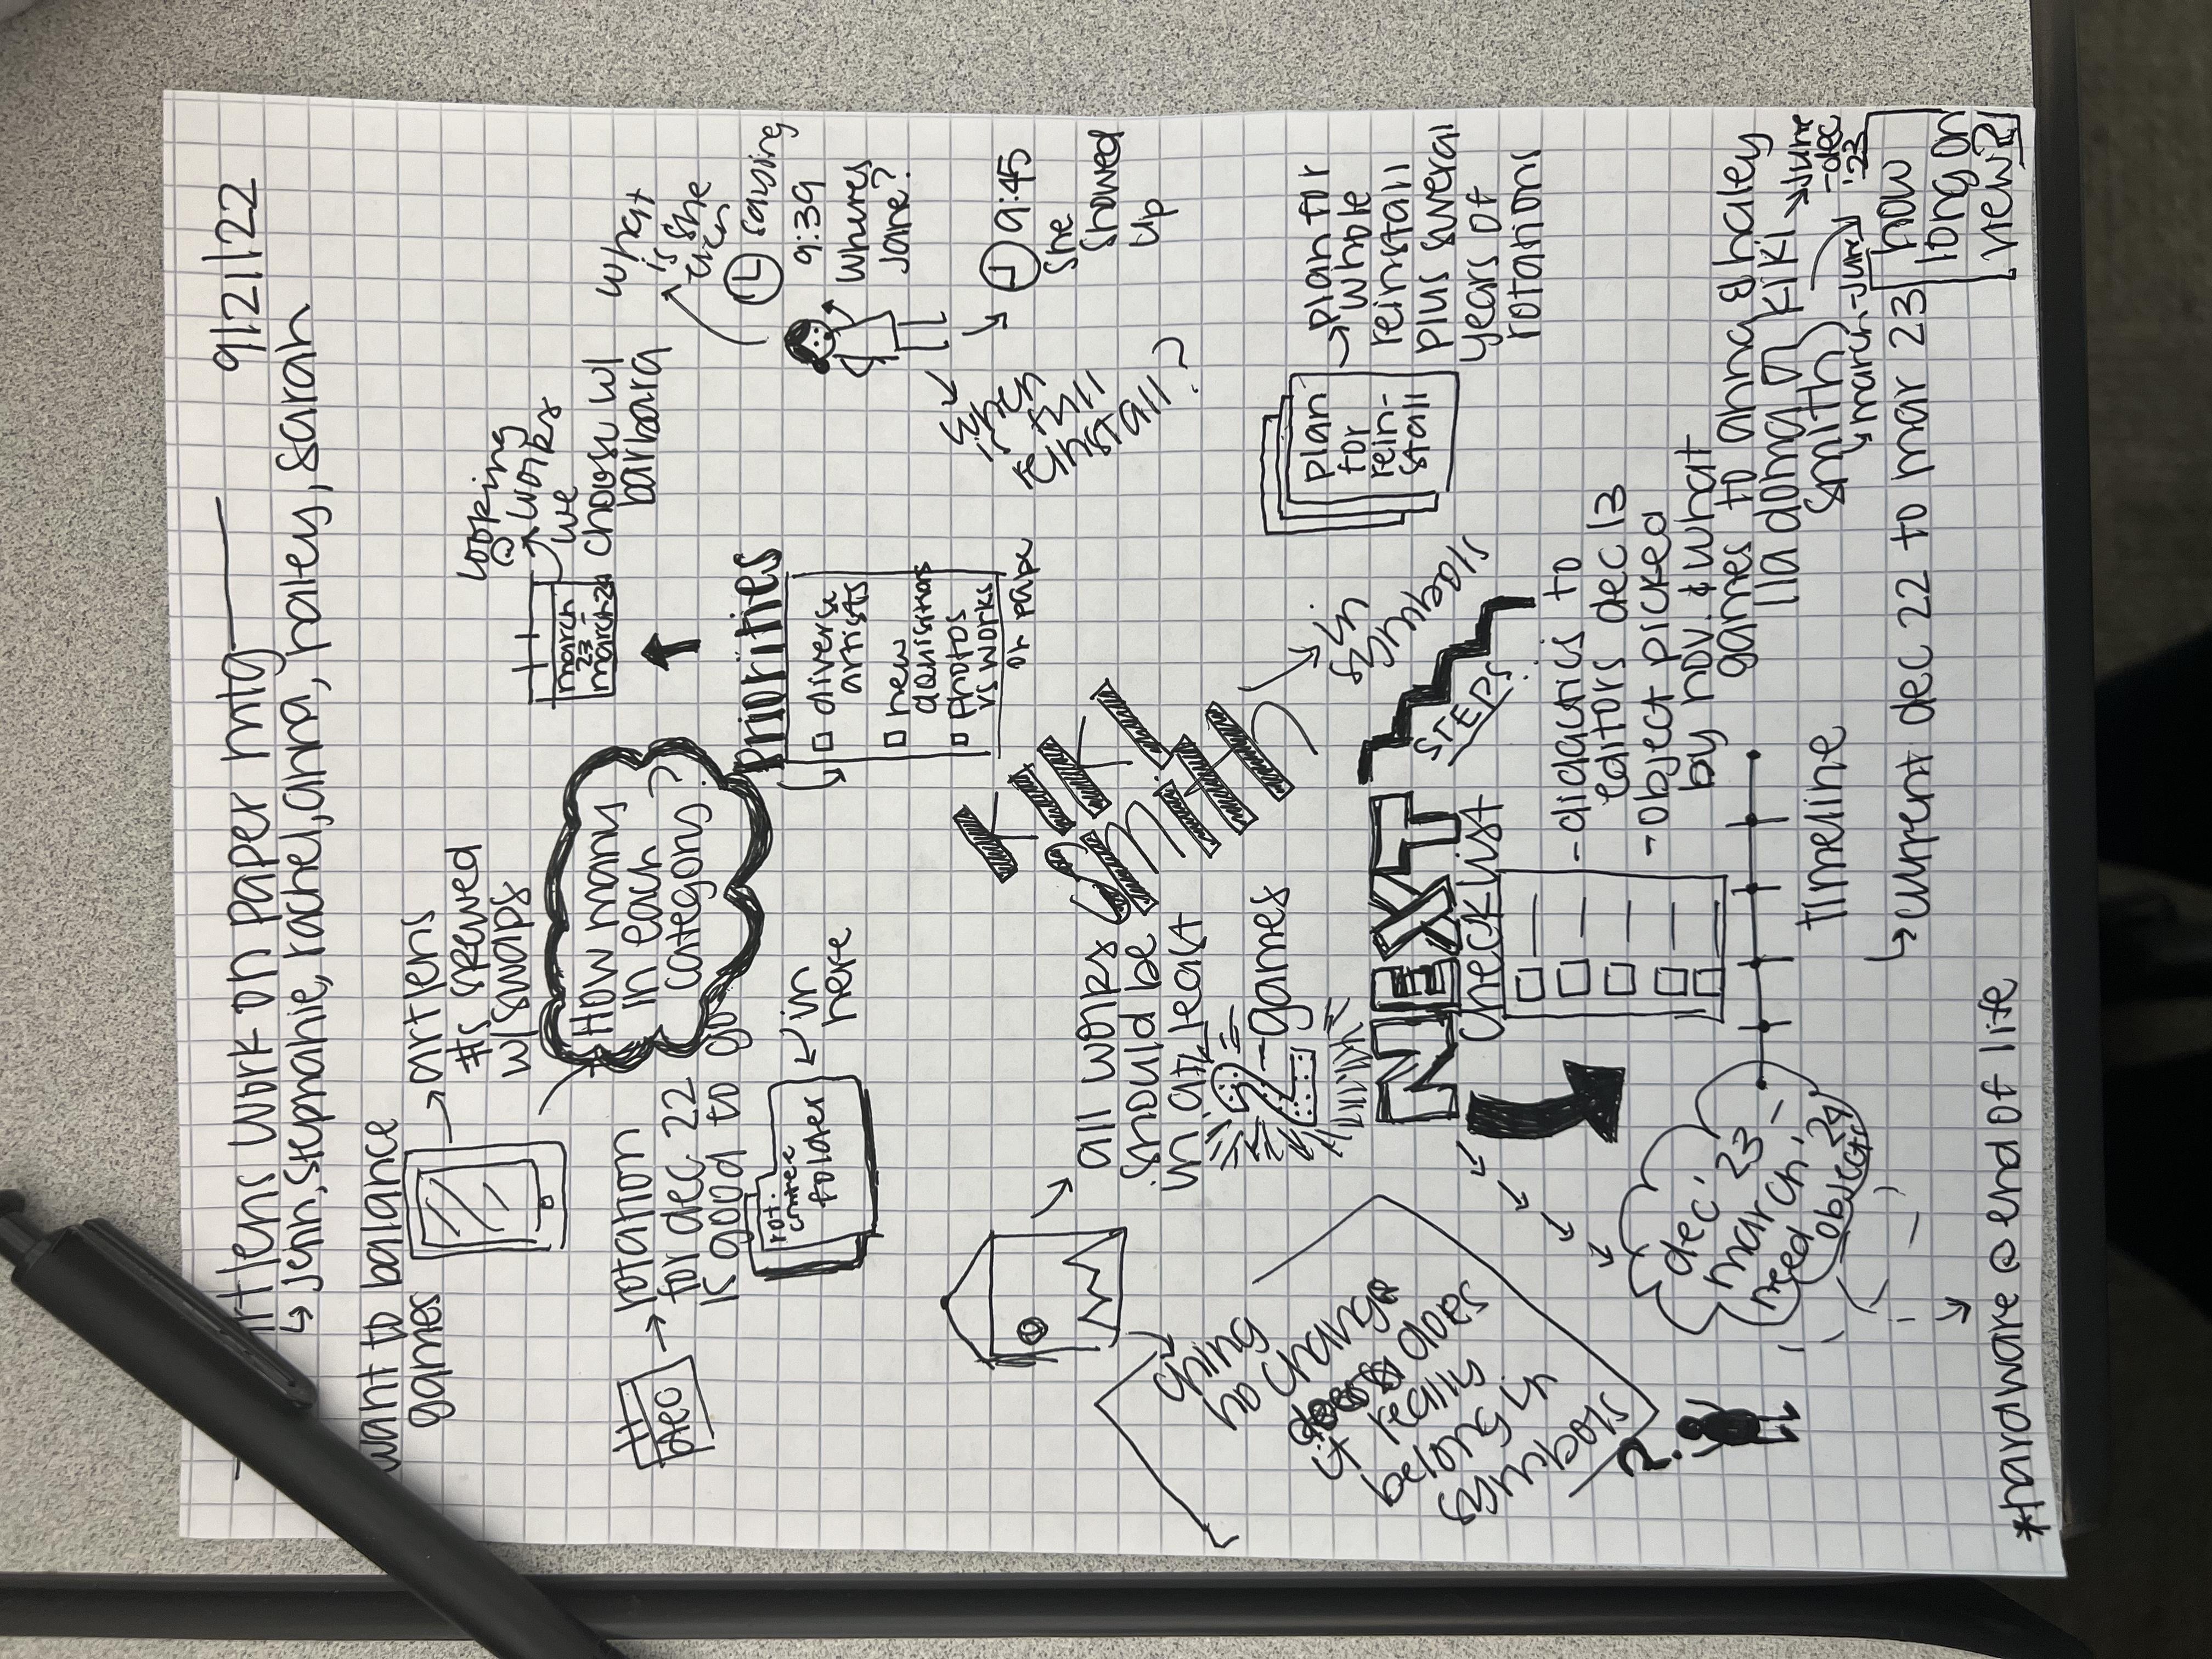 rtlens work on paper mtg 9/21/22
↳ jenn, stephanie, rachel, anna, haley, sarah
want to balance
games
→ artlens
#s skewed
w/ swaps
*How many
in each
category?
looking
@ works
we
choose w/
barbara
march
23 -
march 24
what
is she
saying
9:39
wheres
jane?
9:45
she
showed
up
when
full
install?
DEC
→ rotation
for dec 22
is good to go
rot.
folder
in
here
Priorities
□ diverse
artists
□ new
□ photos
vs works
on paper
KIKI
SMITH
→ is in
symbols
all works
should be
in at least
2 games
plan
for
rein-
stall
→ plan for
whole
reinstall
plus several
years of
rotations
no change
it does
really
belong in
symbols
?
NEXT
STEPS
checklist
- didactics to
editors dec 13
- object picked
by nov. & what
games to anna & haley
timeline
dec '23 -
march '24
need
object
smith
→ march - June
→ June
- dec
'23
↳ current dec 22 to mar 23
how
long on
view?
*hardware @ end of life